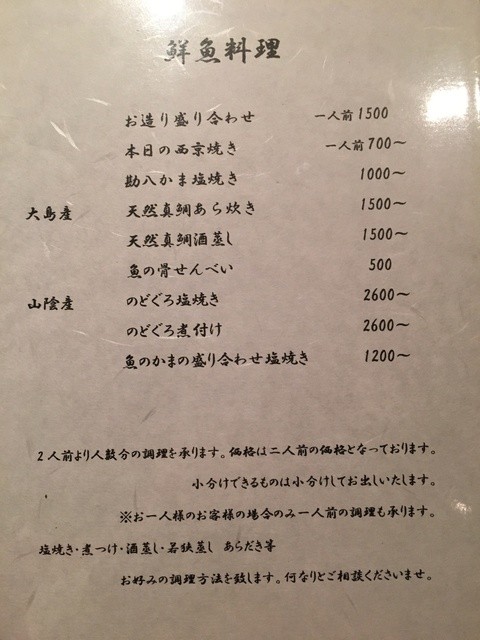 鮮魚料理
お造り盛り合わせ 一人前1500
本日の西京焼き 一人前700〜
勘八かま塩焼き 1000〜
大島産 天然真鯛あら炊き 1500〜
天然真鯛酒蒸し 1500〜
魚の骨せんべい 500
山陰産 のどぐろ塩焼き 2600〜
のどぐろ煮付け 2600〜
魚のかまの盛り合わせ塩焼き 1200〜
2人前より人数分の調理を承ります。価格は二人前の価格となっております。
小分けできるものは小分けしてお出しいたします。
※お一人様のお客様の場合のみ一人前の調理も承ります。
塩焼き・煮つけ・酒蒸し・若狭蒸し あらだき等
お好みの調理方法を致します。何なりとご相談くださいませ。